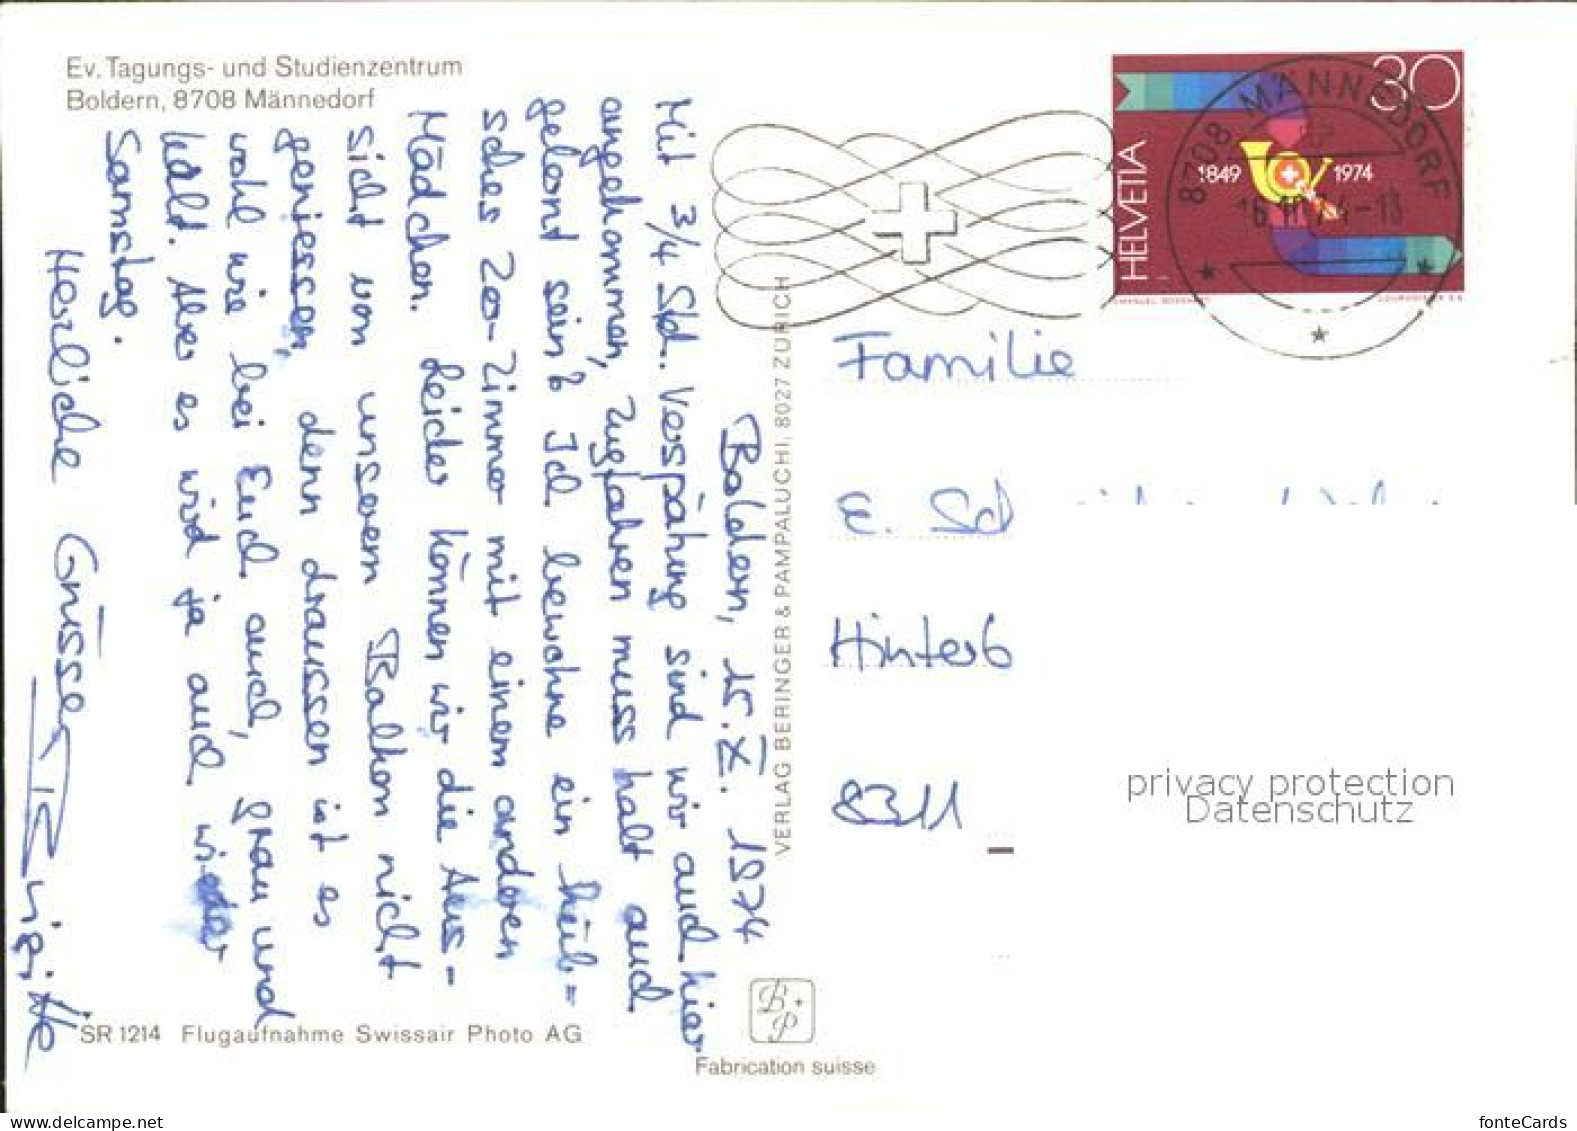 Ev. Tagungs- und Studienzentrum
Boldern, 8708 Männedorf
Boldern, 15. X. 1974
Mit 3/4 Std. Verspätung sind wir auch hier
angekommen, Zugfahren muss halt auch
gelernt sein! Ich bewohne ein hüb=
sches 2er-Zimmer mit einem anderen
Mädchen. Leider können wir die Aus-
sicht von unserem Balkon nicht
geniessen, denn draussen ist es
wohl wie bei Euch auch, grau und
kalt. Aber es wird ja auch wieder
Samstag.
Herzliche Grüsse
Brigitte
SR 1214 Flugaufnahme Swissair Photo AG
VERLAG BERINGER & PAMPALUCHI, 8027 ZÜRICH
B + P
Fabrication suisse
HELVETIA
30
1849
1974
8708 MÄNNEDORF
Familie
E. Sch
Hinterb
8311
privacy protection
Datenschutz
www.delcampe.net
fonteCards